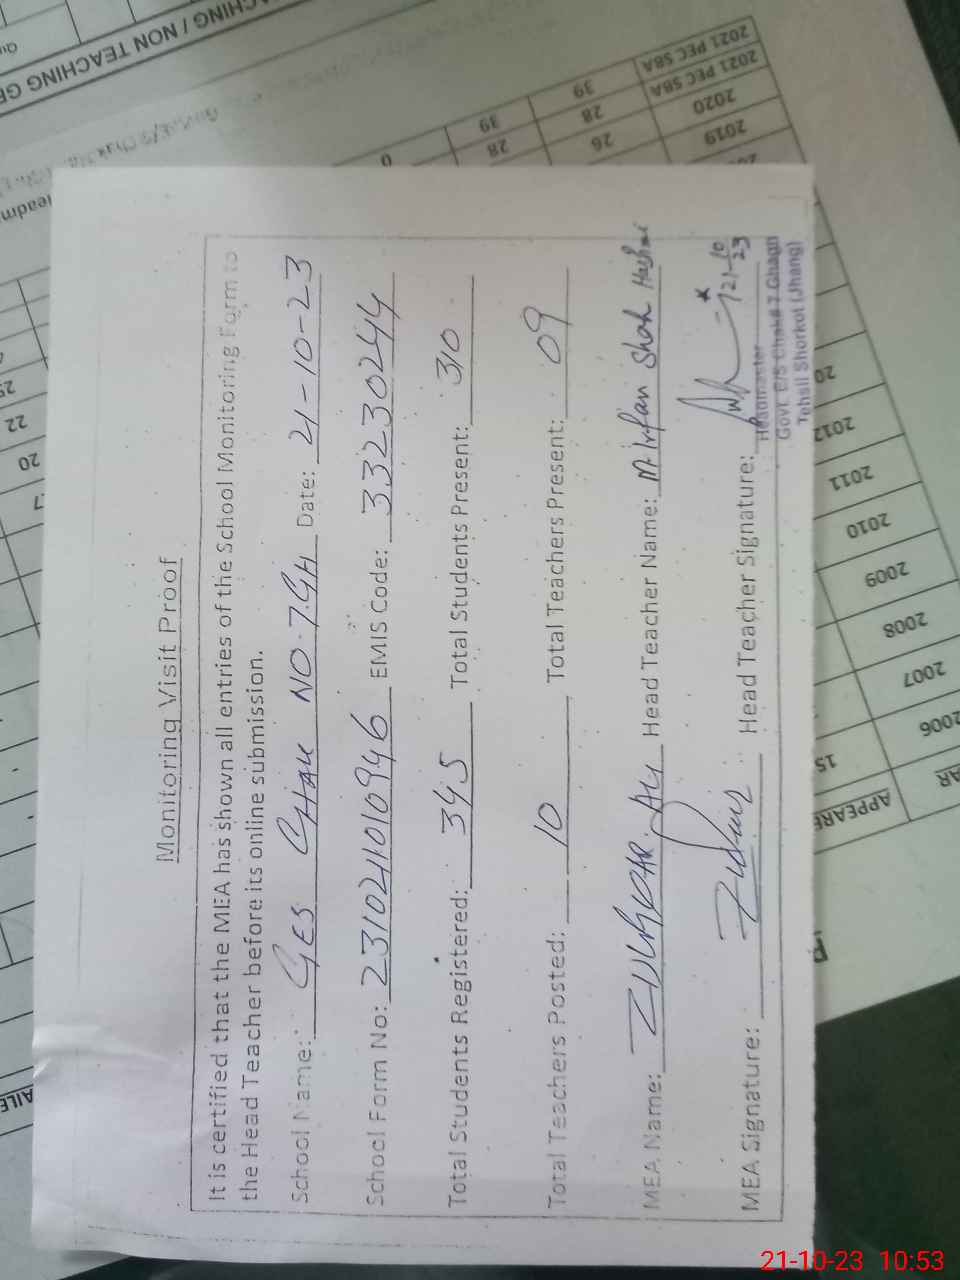 Monitoring Visit Proof
It is certified that the MEA has shown all entries of the School Monitoring Form to
the Head Teacher before its online submission.
School Name: GES CHAK NO. 7.GH Date: 21-10-23
School Form No: 2310211010946 EMIS Code: 33230244
Total Students Registered: 345 Total Students Present: 310
Total Teachers Posted: 10 Total Teachers Present: 09
MEA Name: ZULFIQAR ALI Head Teacher Name: M. Irfan Shah Hashmi
MEA Signature: Head Teacher Signature: 21-10-23
Headmaster
Govt. E/S Chak# 7 Ghagh
Tehsil Shorkot (Jhang)
CHING / NON TEACHING
2021 PEC SBA 39 39 0
2021 PEC SBA 28 28
2020 26
2019
2012
2011
2010
2009
2008
2007
2006 15
APPEARE
22
20
21-10-23 10:53